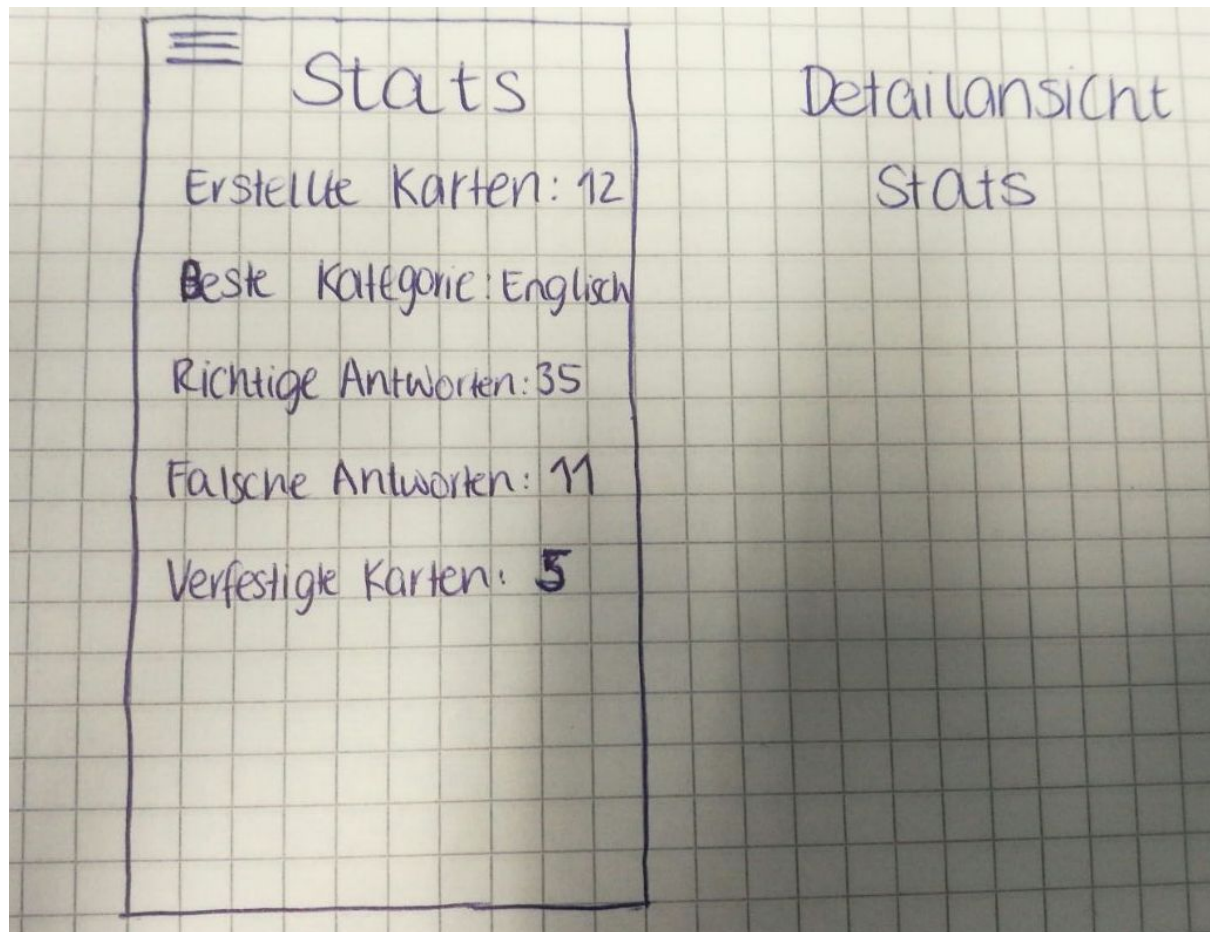 Stats
Erstellte Karten: 12
Beste Kategorie: Englisch
Richtige Antworten: 35
Falsche Antworten: 11
Verfestigte Karten: 5
Detailansicht
Stats